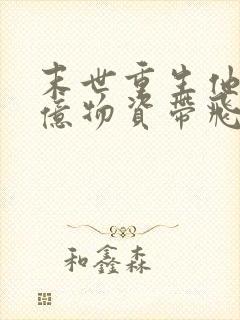 末世重生他
億物資帶飛
和鑫森